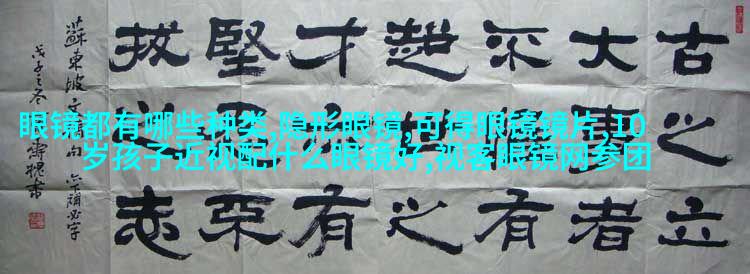 眼镜都有哪些种类,隐形眼镜,可得眼镜镜片,10
岁孩子近视配什么眼镜好,视客眼镜网参团
古之立
大事者
不惟有
超世之
才有
堅忍不
拔之志
蘇東坡文句
戊子之冬書